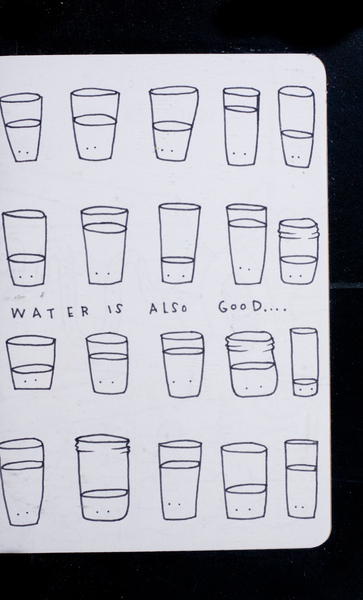 WATER IS ALSO GOOD....